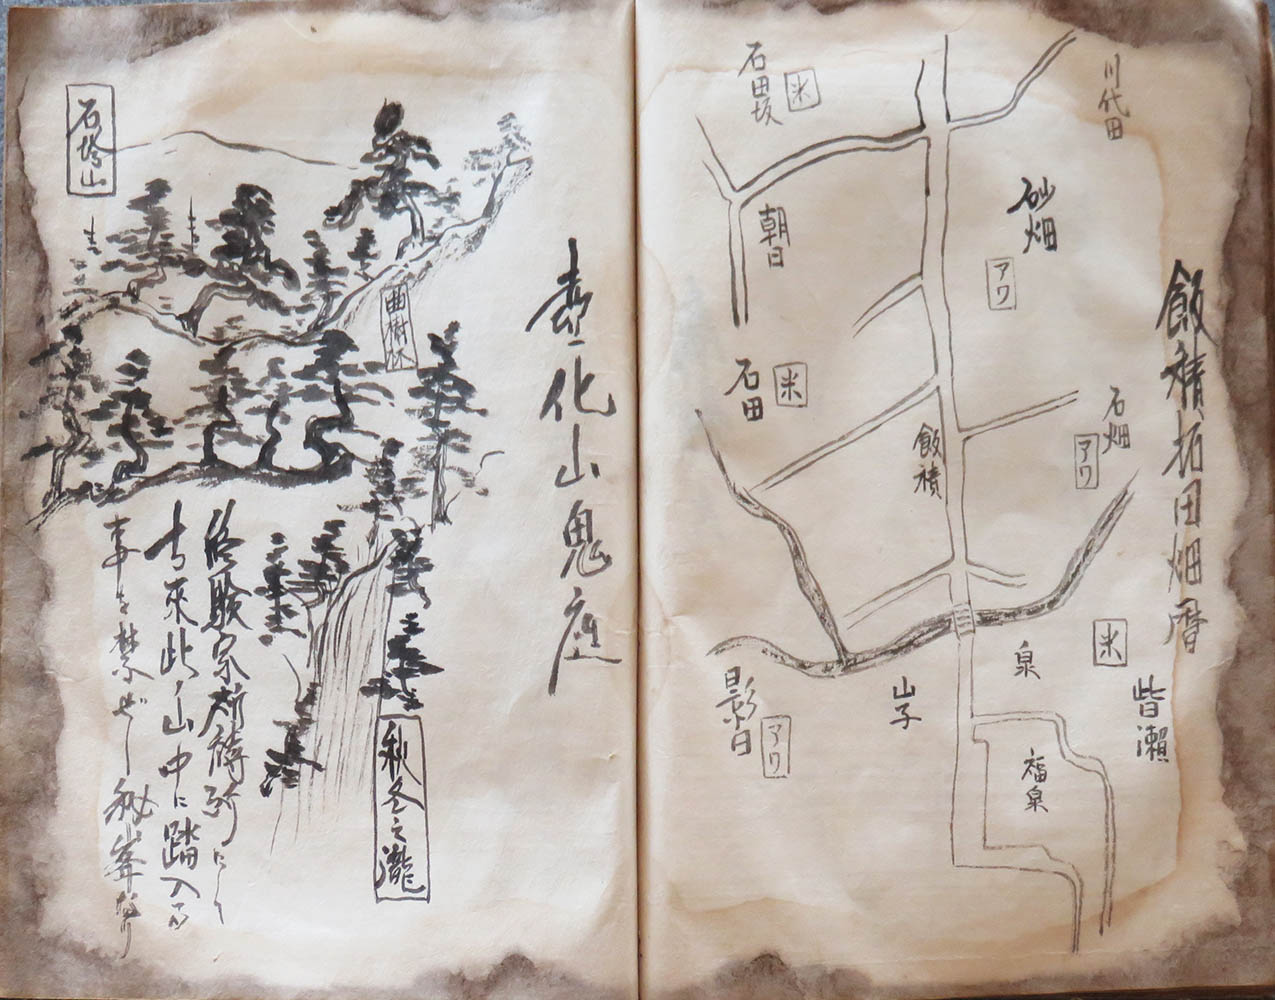 飯積拓田畑暦
川代田
石田坂
米
砂畑
アワ
朝日
石田
米
飯積
石畑
アワ
米
皆瀬
泉
福泉
山子
影日
アワ
化山鬼庭
石塔山
曲樹林
秋冬之瀧
修験宗祈祷所にして
古来此ノ山中に踏入る
事を禁ぜし秘峯なり